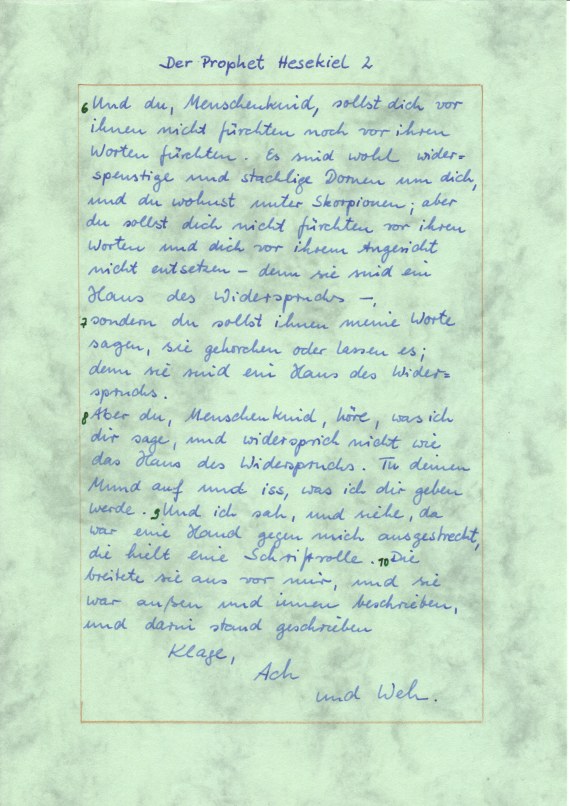 Der Prophet Hesekiel 2
6 Und du, Menschenkind, sollst dich vor
ihnen nicht fürchten noch vor ihren
Worten fürchten. Es sind wohl wider=
spenstige und stachlige Dornen um dich,
und du wohnst unter Skorpionen; aber
du sollst dich nicht fürchten vor ihren
Worten und dich vor ihrem Angesicht
nicht entsetzen – denn sie sind ein
Haus des Widerspruchs –,
7 sondern du sollst ihnen meine Worte
sagen, sie gehorchen oder lassen es;
denn sie sind ein Haus des Wider=
spruchs.
8 Aber du, Menschenkind, höre, was ich
dir sage, und widersprich nicht wie
das Haus des Widerspruchs. Tu deinen
Mund auf und iss, was ich dir geben
werde. 9 Und ich sah, und siehe, da
war eine Hand gegen mich ausgestreckt,
die hielt eine Schriftrolle. 10 Die
breitete sie aus vor mir, und sie
war außen und innen beschrieben,
und darin stand geschrieben
Klage,
Ach
und Weh.